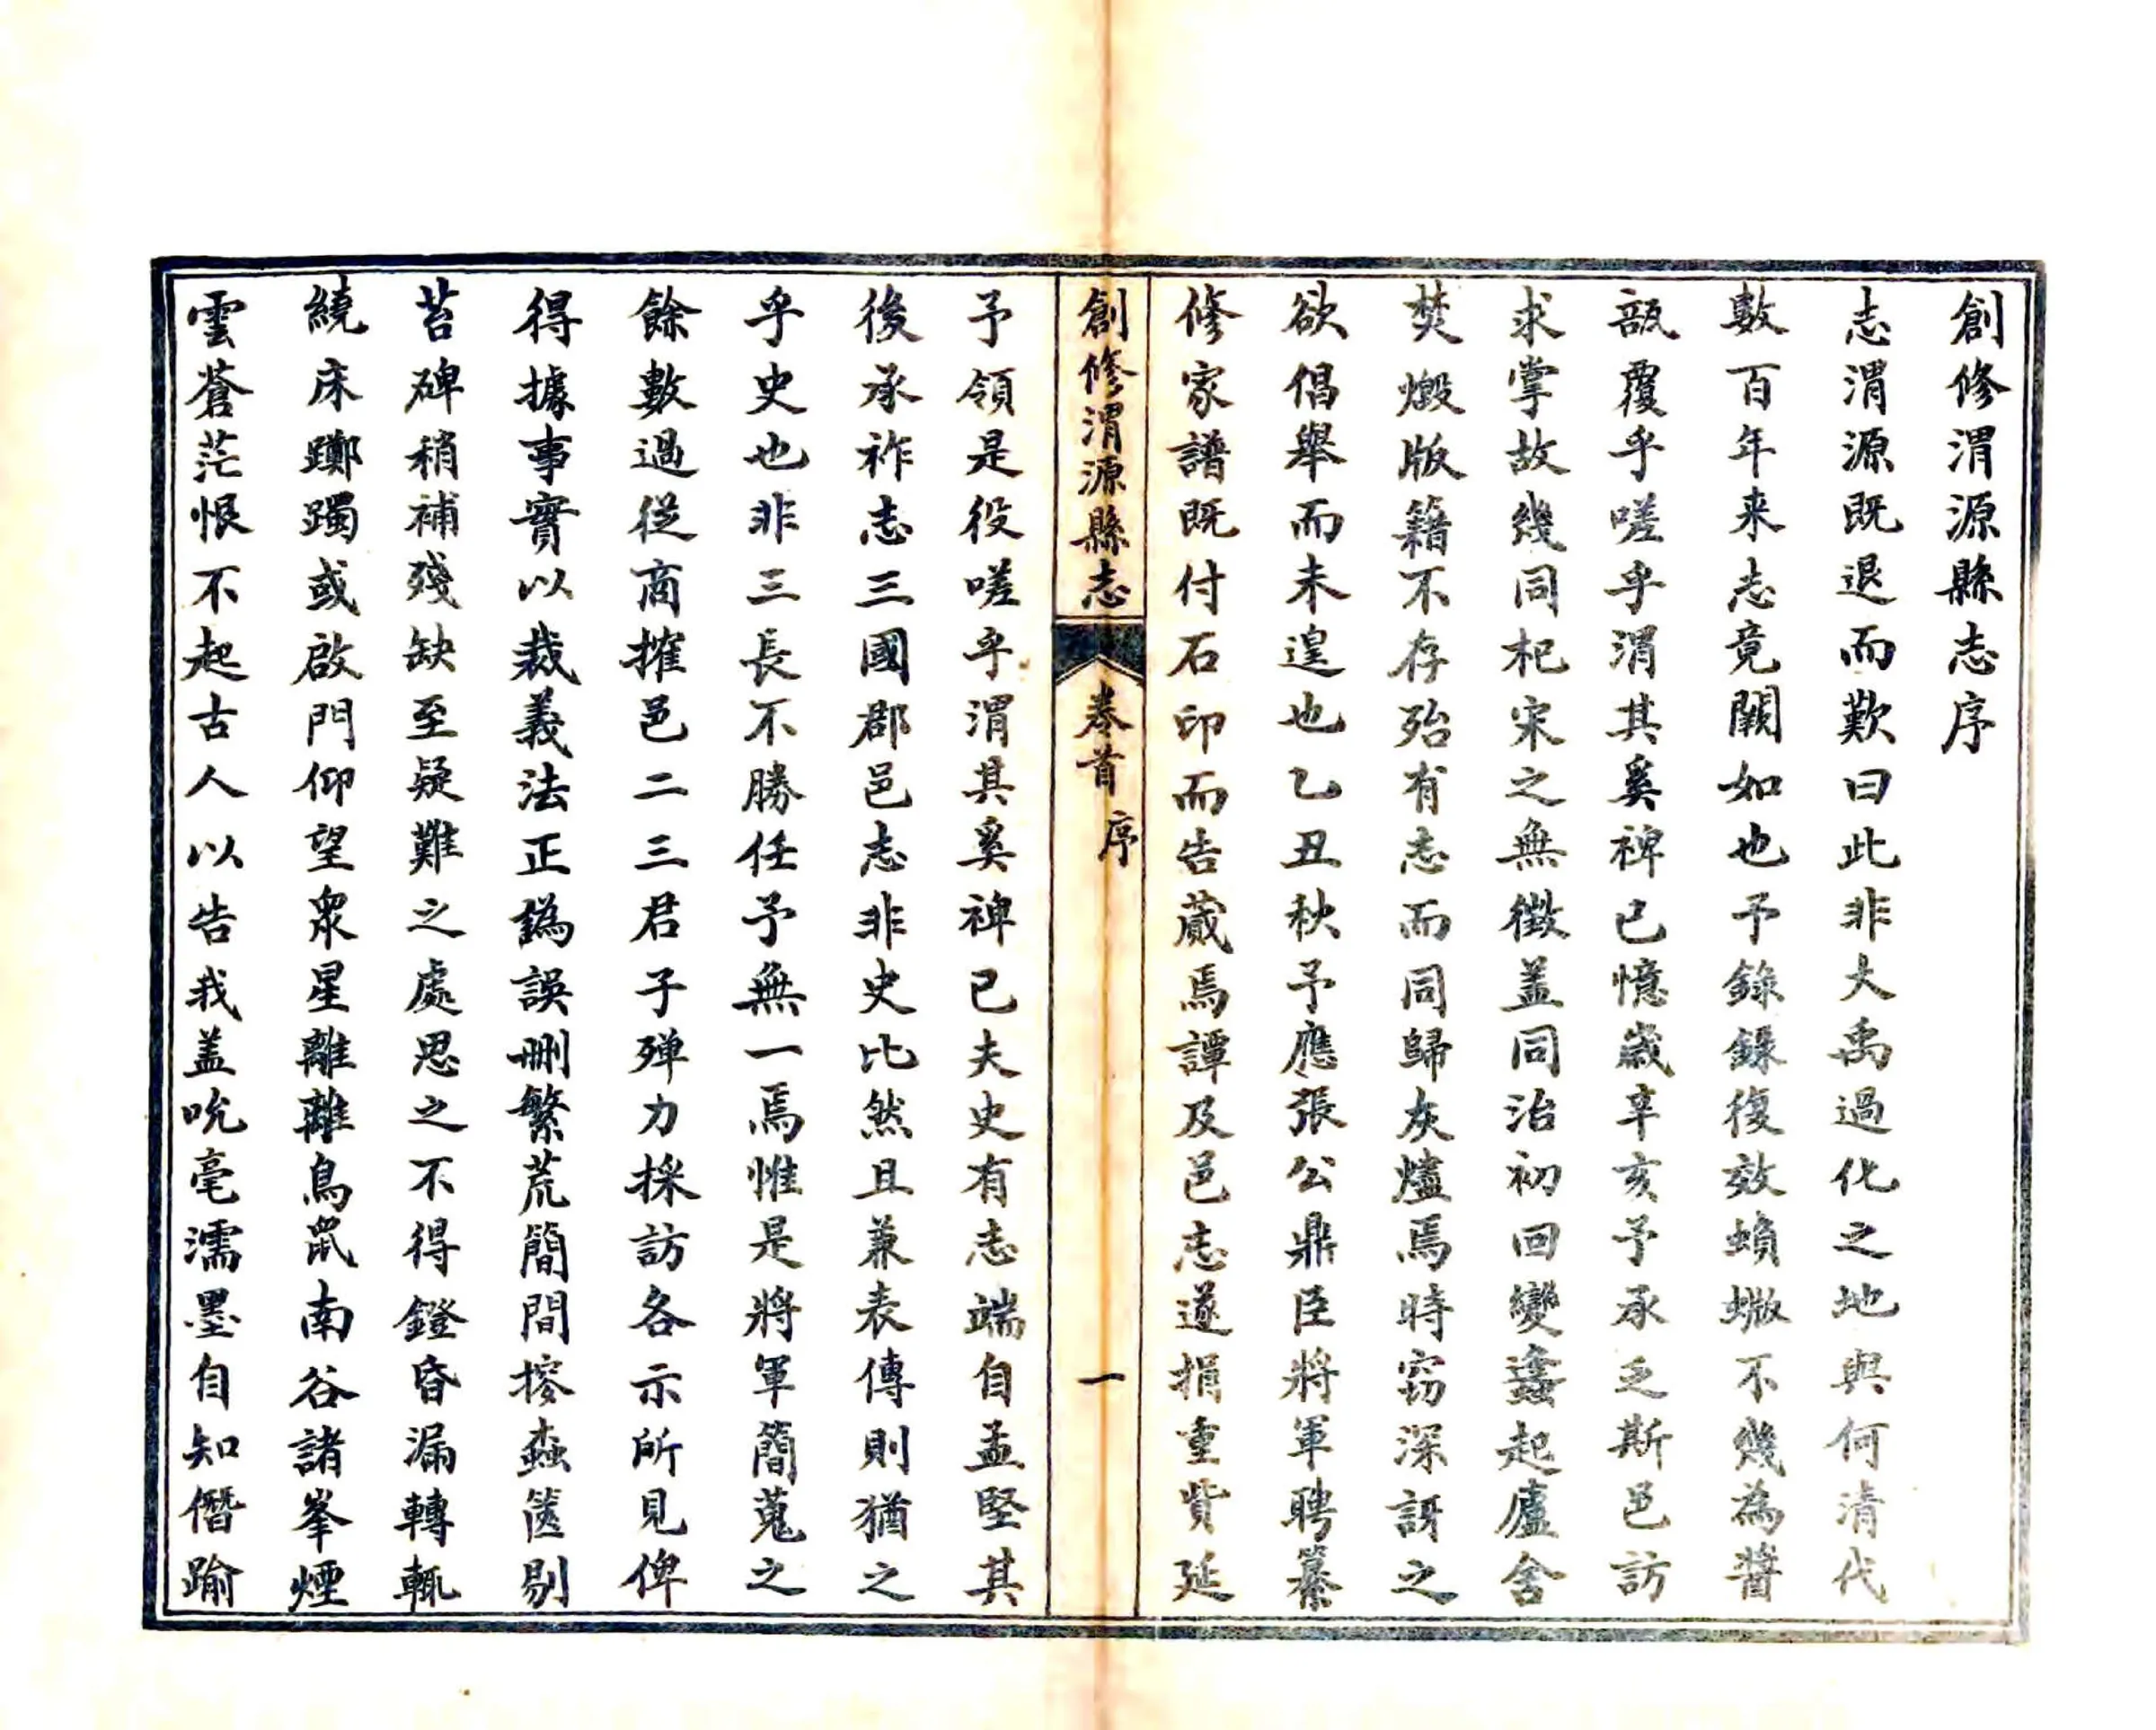 創修渭源縣志序
志渭源既退而歎曰此非大禹過化之地與何清代
數百年来志竟闕如也予錄錄復效蝜蝂不幾為醬
瓿覆乎嗟乎渭其奚裨已憶歲辛亥予承乏斯邑訪
求掌故幾同杞宋之無徵盖同治初回變蠭起廬舍
焚燬版籍不存殆有志而同歸灰燼焉時窃深訝之
欲倡舉而未遑也乙丑秋予應張公鼎臣將軍聘纂
修家譜既付石印而告蕆焉譚及邑志遂捐重貲延
創修渭源縣志
卷首
序
一
予領是役嗟乎渭其奚裨已夫史有志端自孟堅其
後承祚志三國郡邑志非史比然且兼表傳則猶之
乎史也非三長不勝任予無一焉惟是將軍簡蒐之
餘數過從商搉邑二三君子殫力採訪各示所見俾
得據事實以裁義法正譌誤刪繁荒簡間搜蠧篋剔
苔碑稍補殘缺至疑難之處思之不得鐙昏漏轉輒
繞床躑躅或啟門仰望衆星離離鳥鼠南谷諸峯煙
雲蒼茫恨不起古人以告我盖吮毫濡墨自知僭踰